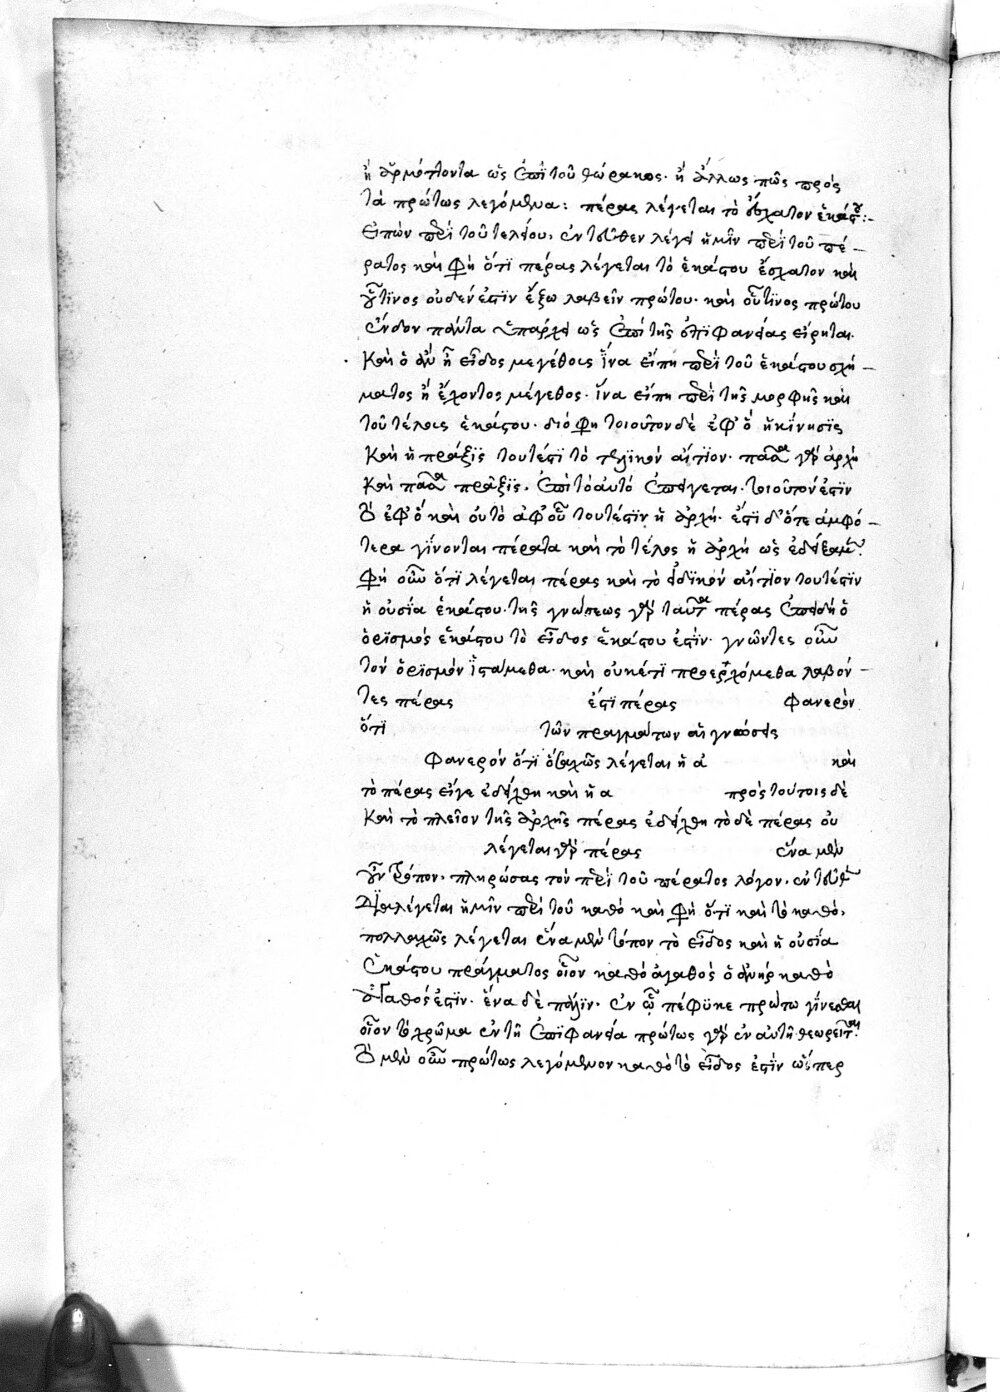 ἢ ἁρμόττοντα ὡς ἐπὶ τοῦ θώρακος. ἢ ἄλλως πῶς πρὸς
τὰ πρώτως λεγόμενα: πέρας λέγεται τὸ ἔσχατον ἑκάστου:-
Εἰπὼν περὶ τοῦ τελείου, ἐντεῦθεν λέγει ἡμῖν περὶ τοῦ πέ-
ρατος καὶ φησὶ ὅτι πέρας λέγεται τὸ ἑκάστου ἔσχατον καὶ
οὗτινος οὐδέν ἐστιν ἔξω λαβεῖν πρώτου. καὶ οὗτινος πρώτου
ἔνδον πάντα ὑπάρχει ὡς ἐπὶ τῆς ἐπιφανείας εἴρηται.
Καὶ ὃ ἂν ᾖ εἶδος μεγέθους ἵνα εἴπη περὶ τοῦ ἑκάστου σχή-
ματος ἢ ἔχοντος μέγεθος. ἵνα εἴπη περὶ τῆς μορφῆς καὶ
τοῦ τέλους ἑκάστου. διό φησι τοιοῦτον δὲ ἐφ' ὃ ἡ κίνησις
Καὶ ἡ πρᾶξις τουτέστι τὸ τελικὸν αἴτιον. πᾶσα γὰρ ἀρχὴ
καὶ πᾶσα πρᾶξις. ἐπὶ τὸ αὐτὸ ἐπείγεται. τοιοῦτόν ἐστιν
τὸ ἐφ' ὃ καὶ οὐ τὸ ἀφ' οὗ τουτέστιν ἡ ἀρχή. ἔστι δ' ὅτε ἀμφό-
τερα γίνονται πέρατα καὶ τὸ τέλος ἢ ἀρχὴ ὡς ἐδείξαμεν.
Φησὶ οὖν ὅτι λέγεται πέρας καὶ τὸ εἰδικὸν αἴτιον τουτέστιν
ἡ οὐσία ἑκάστου. τῆς γνώσεως γὰρ ταῦτα πέρας ἐπειδὴ ὁ
ὁρισμὸς ἑκάστου τὸ εἶδος ἑκάστου ἐστίν. γνῶντες οὖν
τὸν ὁρισμὸν ἱστάμεθα. καὶ οὐκέτι προερχόμεθα λαβόν-
τες πέρας ἐστὶ πέρας φανερὸν
ὅτι τῶν πραγμάτων αἱ γνώσεις
Φανερὸν ὅτι ὁσαχῶς λέγεται ἡ ἀ καὶ
τὸ πέρας εἴγε ἐδείχθη καὶ ἡ α πρὸς τούτοις δὲ
Καὶ τὸ πλεῖον τῆς ἀρχῆς πέρας ἐδείχθη τὸ δὲ πέρας οὐ
λέγεται γὰρ πέρας ἕνα μὲν
οὖν τρόπον. πληρώσας τὸν περὶ τοῦ πέρατος λόγον. ἐντεῦθεν
Διαλέγεται ἡμῖν περὶ τοῦ καθὸ καὶ φησὶ ὅτι καὶ τὸ καθὸ,
πολλαχῶς λέγεται ἕνα μὲν τρόπον τὸ εἶδος καὶ ἡ οὐσία
ἑκάστου πράγματος οἷον καθὸ ἀγαθὸς ὁ ἀνὴρ καθὸ
ἀγαθός ἐστιν. ἕνα δὲ πάλιν. ἐν ᾧ πέφυκε πρώτω γίνεσθαι
οἷον τὸ χρῶμα ἐν τῆ ἐπιφανεία πρώτως γὰρ ἐν αὐτῆ θεωρεῖται.
τὸ μὲν οὖν πρώτως λεγόμενον καθὸ τὸ εἶδος ἐστὶν ὥσπερ